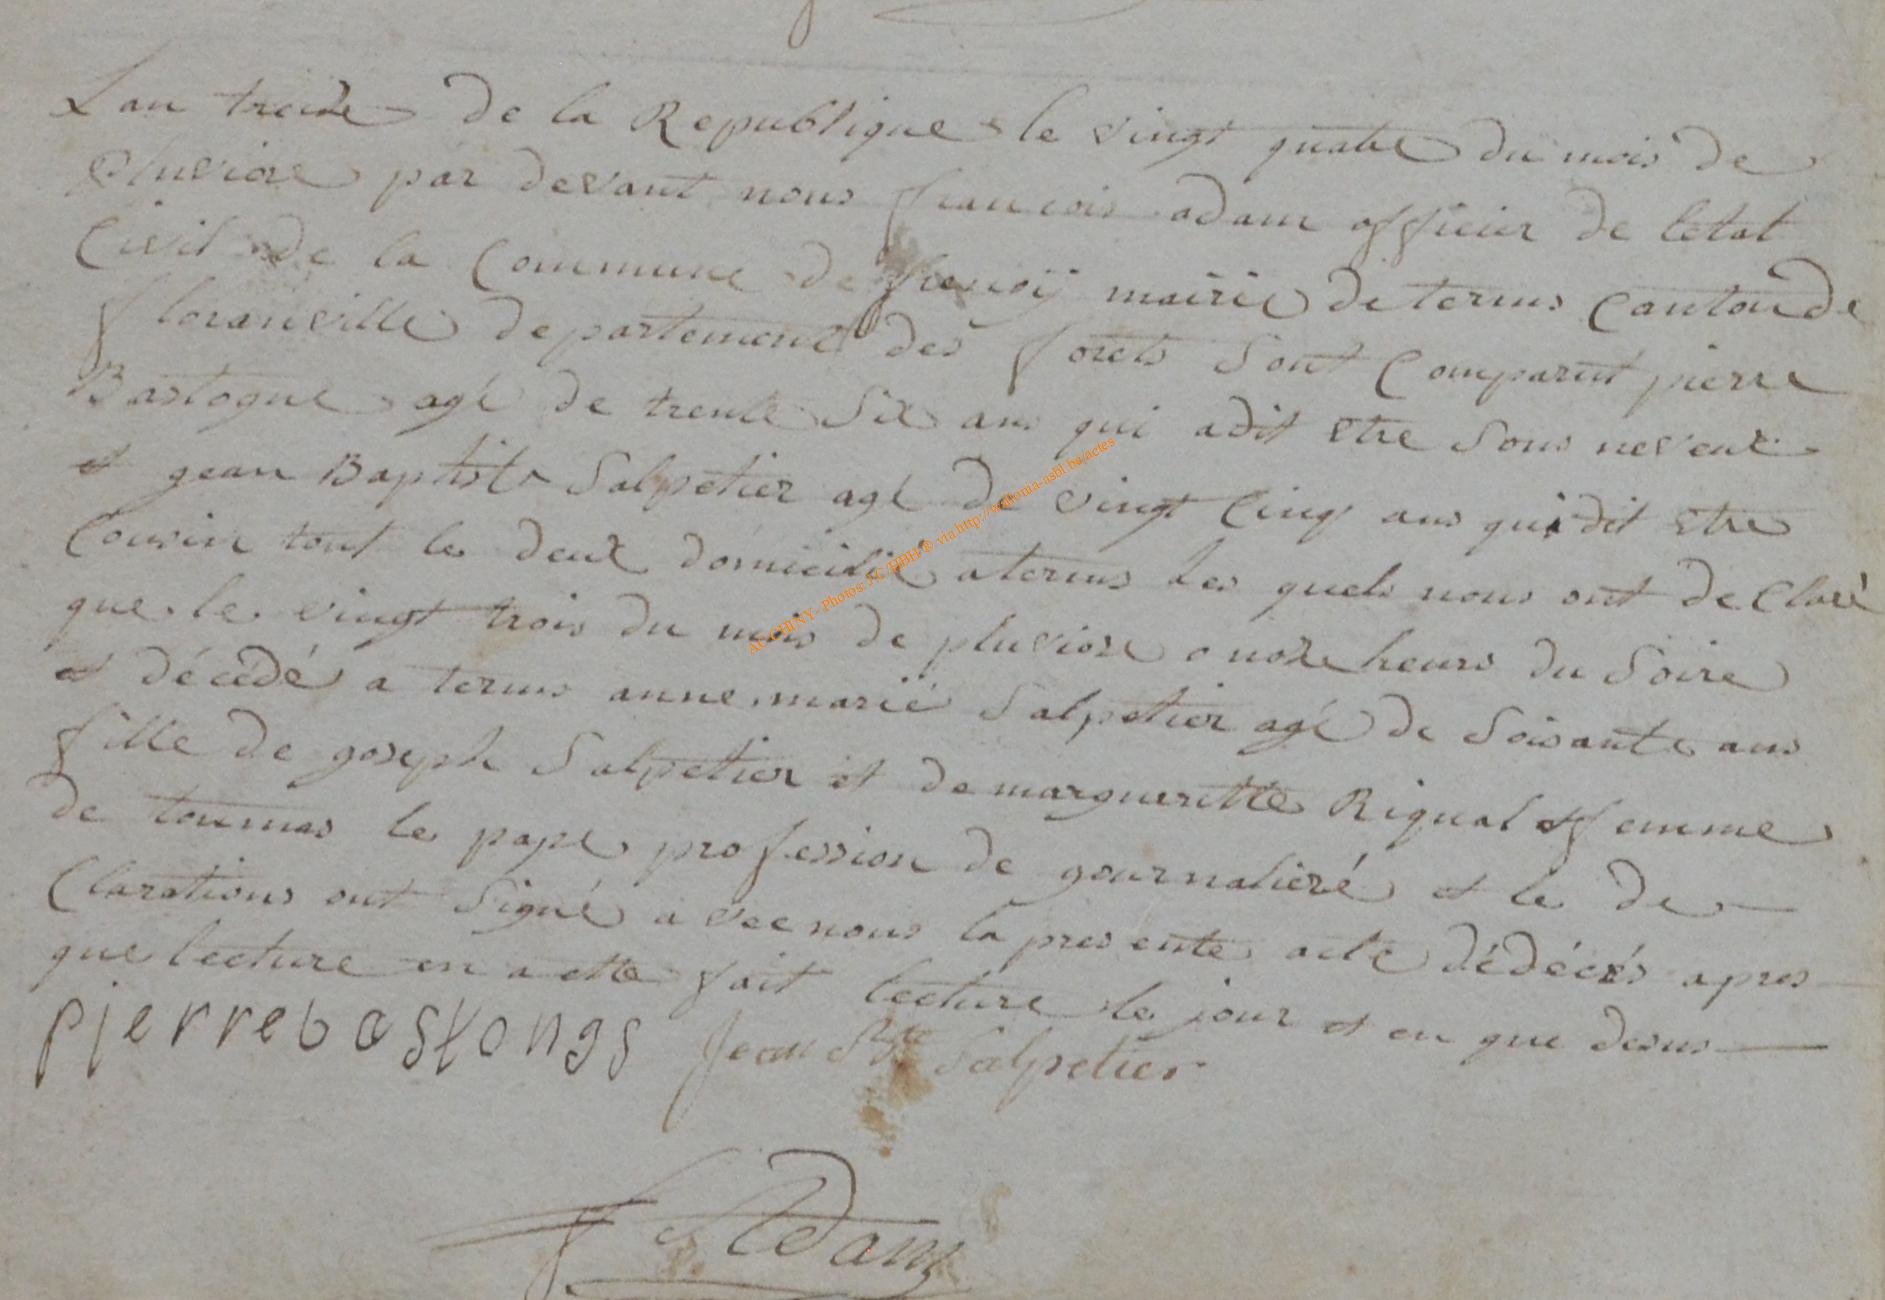 Lan treize de la Republique le vingt quatre du mois de
pluviose par devant nous francois adam officier de letat
Civil de la Commune de mairie de termes Canton de
floranville departement des forets Sont Comparut pierre
Bastogne agé de trente Six ans qui adit etre Sons neveux
et gean Baptiste Salpetier agé de vingt Cinq ans qui dit etre
Cousin tout le deux domicilié a termes Les quels nous ont de Claré
que le vingt trois du mois de pluviose onze heurs du Soire
et décédé a termes anne marié Salpetier agé de Soisante ans
fille de goseph Salpetier et de margueritte Riqual femme
de toumas le pape profession de gournalieré et le de
Clarations ont Signé avec nous la presente acte dédécés apres
que lecture en a ette fait lecture le jour et en que desus
pierrebastongs Jean Bte Salpetier
f Adam
AC CHINY - Photos: J C HBH © via http://walfonia-asbl.be/actes